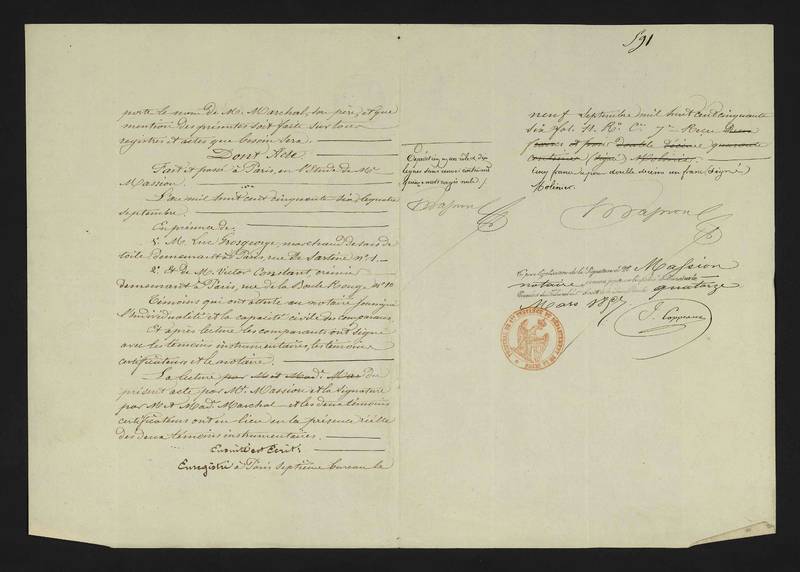 591
porte le nom de Mr. Marchal, son père, et que
mention des présentes soit faite sur tous
registres et actes que besoin sera.
Dont Acte
Fait et passé à Paris, en l'Etude de Mr.
Massion.
L'an mil huit cent cinquante six le quatre
septembre.
En présence de:
1o. Mr. Luc Grosgeorge, marchand de
toile demeurant à Paris, rue de Sartine no. 1.
2o. Et de Mr. Victor Constant,
demeurant à Paris, rue de la Boule Rouge, no. 10
Témoins qui ont attesté au notaire soussigné
l'individualité et la capacité civile des comparans.
Et après lecture les comparants ont signé
avec les témoins instrumentaires, les témoins
certificateurs et le notaire.
La lecture par Mr et Mad. Mar du
présent acte par Mr. Massion et la signature
par M et Mad. Marchal et les deux témoins
certificateurs ont eu lieu en la présence réelle
des deux témoins instrumentaires.
Ensuite est Ecrit:
Enregistré à Paris septième bureau le
neuf septembre mil huit cent cinquante
six fol. 11. Ro. C. 7. Reçu
francs et pour Double Décime quarante
centimes (Signé) Molinier
cinq francs
double décime un franc (Signé)
Molinier.
lignes sans
quinze mots rayés nuls
Massion
notaire
quatorze
Mars 185